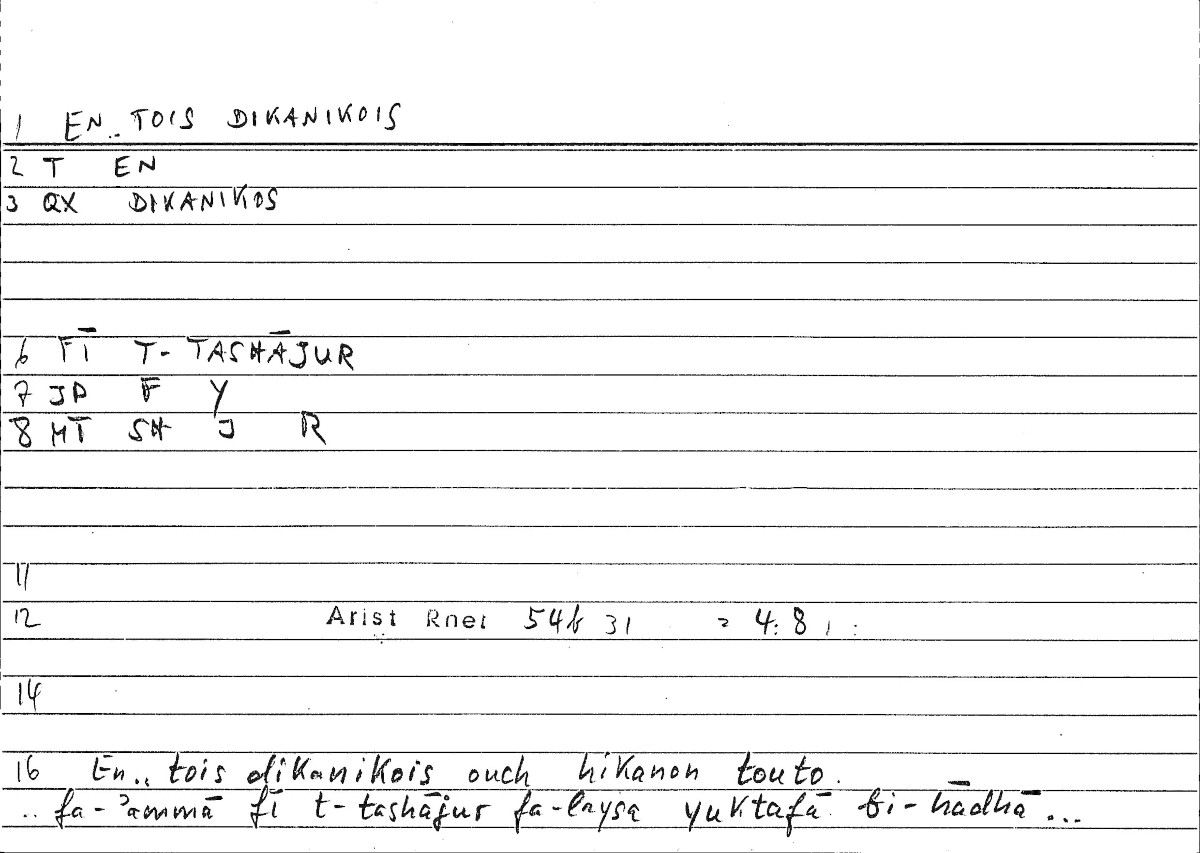 1 EN.. TOIS DIKANIKOIS
2 T EN
3 QX DIKANIKOS
6 FĪ T-TASHĀJUR
7 JP F Y
8 MT SH J R
11
12 Arist Rhet 54b 31 = 4:8,
14
16 En.. tois dikanikois ouch hikanon touto.
.. fa-ʾammā fī t-tashājur fa-laysa yuktafā bi-hādhā ...